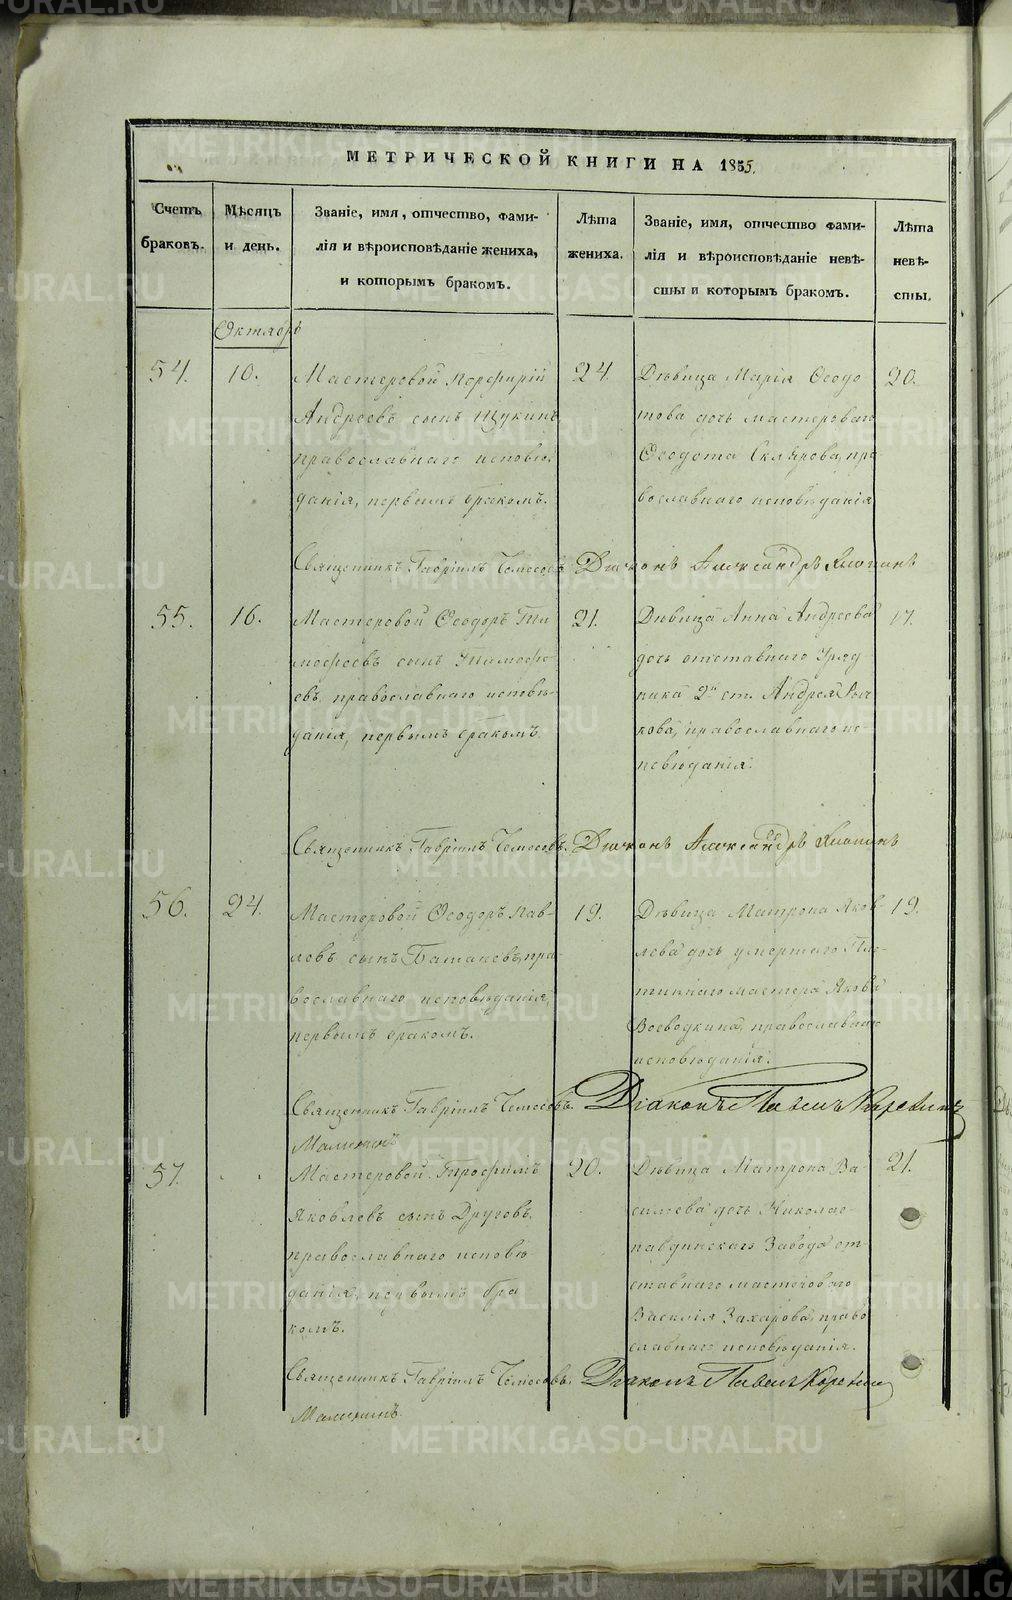 МЕТРИЧЕСКОЙ КНИГИ НА 1855.
Счетъ браковъ.
Мѣсяцъ и день.
Званіе, имя, отчество, фами-
лія и вѣроисповѣданіе жениха,
и которымъ бракомъ.
Лѣта жениха.
Званіе, имя, отчество фами-
лія и вѣроисповѣданіе невѣ-
сты и которымъ бракомъ.
Лѣта невѣ-
сты.
Октябрь
54. 10.
Мастеровой Порфирій
Андреевъ сынъ Щукинъ
православнаго исповѣ-
данія, первымъ бракомъ.
24.
Дѣвица Марія Ѳеодо
това дочь мастероваго
Ѳеодота Склярова, пра-
вославнаго исповѣданія
20.
Священникъ Гавріилъ Діаконъ Александръ
55. 16.
Мастеровой Ѳеодоръ Ти
моѳеевъ сынъ Тимоѳе
евъ, православнаго исповѣ-
данія, первымъ бракомъ
21.
Дѣвица Анна Андреева
дочь отставнаго Уряд
ника 2й ст. Андрея Рыч
кова, православнаго ис-
повѣданія.
17.
Священникъ Гавріилъ Діаконъ Александръ
56. 24.
Мастеровой Ѳеодоръ Пав-
ловъ сынъ Батаневъ, пра-
вославнаго исповѣданія,
первымъ бракомъ.
19.
Дѣвица Матрона Яков
лева дочь умершаго Пло
тиннаго мастера Якова
Воеводкина, православнаго
исповѣданія.
19.
Священникъ Гавріилъ Діаконъ Павелъ
Малининъ
57.
Мастеровой Трофимъ
Яковлевъ сынъ Друговъ,
православнаго исповѣ
данія, первымъ бра
комъ.
20.
Дѣвица Матрона Ва
сильева дочь Николае-
павдинскаго Завода от-
ставнаго мастероваго
Василія Захарова, право
славнаго исповѣданія.
21.
Священникъ Гавріилъ Діаконъ Павелъ
Малининъ
METRIKI.GASO-URAL.RU